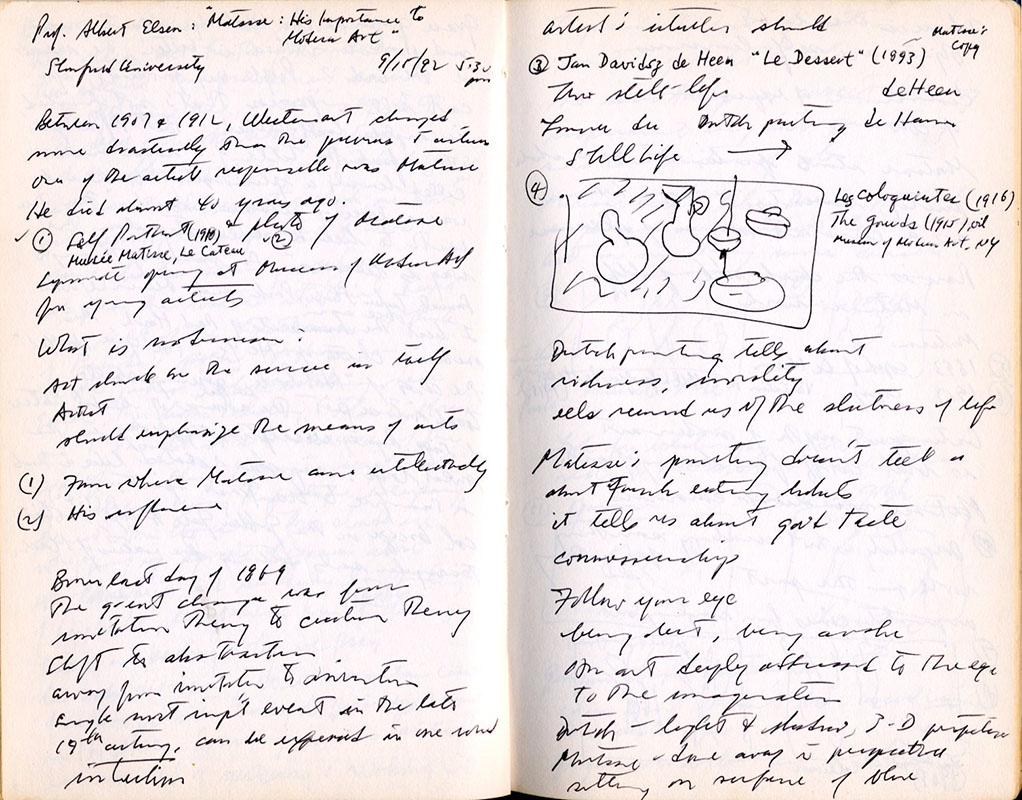 Prof. Albert Elsen: "Matisse: His Importance to
Modern Art"
Stanford University 9/15/92 5:30
pm
Between 1907 & 1912, Western art changed
more drastically than the previous 5 centuries
one of the artists responsible was Matisse
He died almost 40 years ago.
① Self Portrait (1918) & photo of Matisse
② Musée Matisse, Le Cateau
opening at Museum of Modern Art
for young artists
What is modernism:
Art should be the source in itself
Artist
should emphasize the means of arts
(1) From where Matisse came intellectually
(2) His influence
Born last day of 1869
The great change was from
imitation theory to creation theory
shift to abstraction
away from imitation to invention
single most imp't event in the late
19th century, can be expressed in one word
intuition
artist's intuition should
Matisse's
Copy
③ Jan Davidsz de Heem "Le Dessert" (1893)
still-life de Heem
Dutch painting de Heem
Still Life
④
Les Coloquintes (1916)
The gourds (1915), oil
Museum of Modern Art, NY
Dutch painting tells about
richness, morality
eels remind us of the shortness of life
Matisse's painting doesn't tell us
about French eating habits
it tells us about good taste
connoisseurship
Follow your eye
being lost, being awake
An art deeply addressed to the eye
to the imagination
Dutch - light & shadow, 3-D perspective
Matisse - done away c̄ perspective
sitting on surface of blue